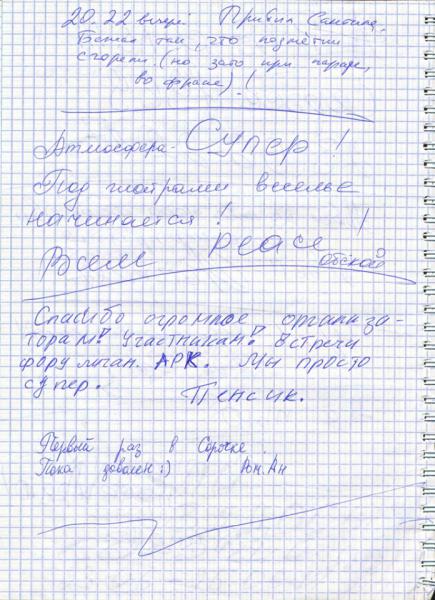 20.22 вечера Прибыл
Бежал так, что подмётки
сгорели (но зато при параде,
во фраке)!
Атмосфера - Супер!
Под
веселье
начинается!
Всем peace !
Спасибо огромное организа-
торам! Участникам! Встречи
форумчан. АРК. Мы просто
супер.
Пенсик.
Первый раз в Сорочке.
Пока доволен :) Юн.Ан